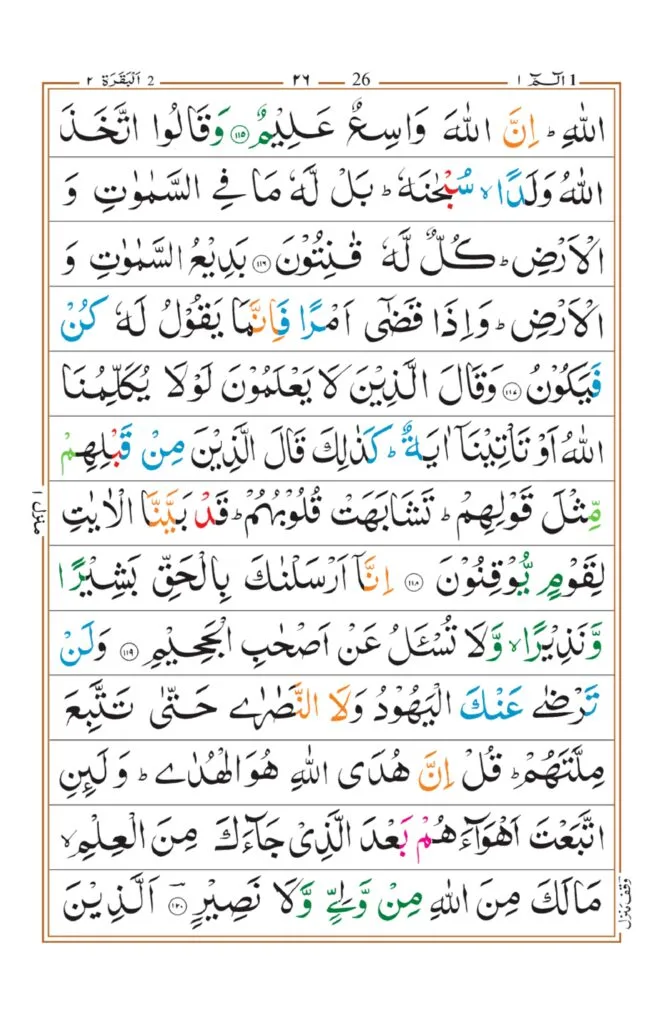 1 الٓـمّٓ ١ 26 ٢٦ 2 اَلْبَقَرَة ٢
اللّٰهِ ؕ اِنَّ اللّٰهَ وَاسِعٌ عَلِيْمٌ ۝١١٥ وَقَالُوا اتَّخَذَ
اللّٰهُ وَلَدًا ۙ سُبْحٰنَهٗ ؕ بَلْ لَّهٗ مَا فِي السَّمٰوٰتِ وَ
الْاَرْضِ ؕ كُلٌّ لَّهٗ قٰنِتُوْنَ ۝١١٦ بَدِيْعُ السَّمٰوٰتِ وَ
الْاَرْضِ ؕ وَاِذَا قَضٰٓى اَمْرًا فَاِنَّمَا يَقُوْلُ لَهٗ كُنْ
فَيَكُوْنُ ۝١١٧ وَقَالَ الَّذِيْنَ لَا يَعْلَمُوْنَ لَوْلَا يُكَلِّمُنَا
اللّٰهُ اَوْ تَاْتِيْنَاۤ اٰيَةٌ ؕ كَذٰلِكَ قَالَ الَّذِيْنَ مِنْ قَبْلِهِمْ
مِّثْلَ قَوْلِهِمْ ؕ تَشَابَهَتْ قُلُوْبُهُمْ ؕ قَدْ بَيَّنَّا الْاٰيٰتِ
لِقَوْمٍ يُّوْقِنُوْنَ ۝١١٨ اِنَّاۤ اَرْسَلْنٰكَ بِالْحَقِّ بَشِيْرًا
وَّنَذِيْرًا ۙ وَّلَا تُسْـَٔلُ عَنْ اَصْحٰبِ الْجَحِيْمِ ۝١١٩ وَلَنْ
تَرْضٰى عَنْكَ الْيَهُوْدُ وَلَا النَّصٰرٰى حَتّٰى تَتَّبِعَ
مِلَّتَهُمْ ؕ قُلْ اِنَّ هُدَى اللّٰهِ هُوَ الْهُدٰى ؕ وَلَىِٕنِ
اتَّبَعْتَ اَهْوَآءَهُمْ بَعْدَ الَّذِيْ جَآءَكَ مِنَ الْعِلْمِ ۙ
مَا لَكَ مِنَ اللّٰهِ مِنْ وَّلِيٍّ وَّلَا نَصِيْرٍ ۝١٢٠ اَلَّذِيْنَ
منزل ١
وقف منزل